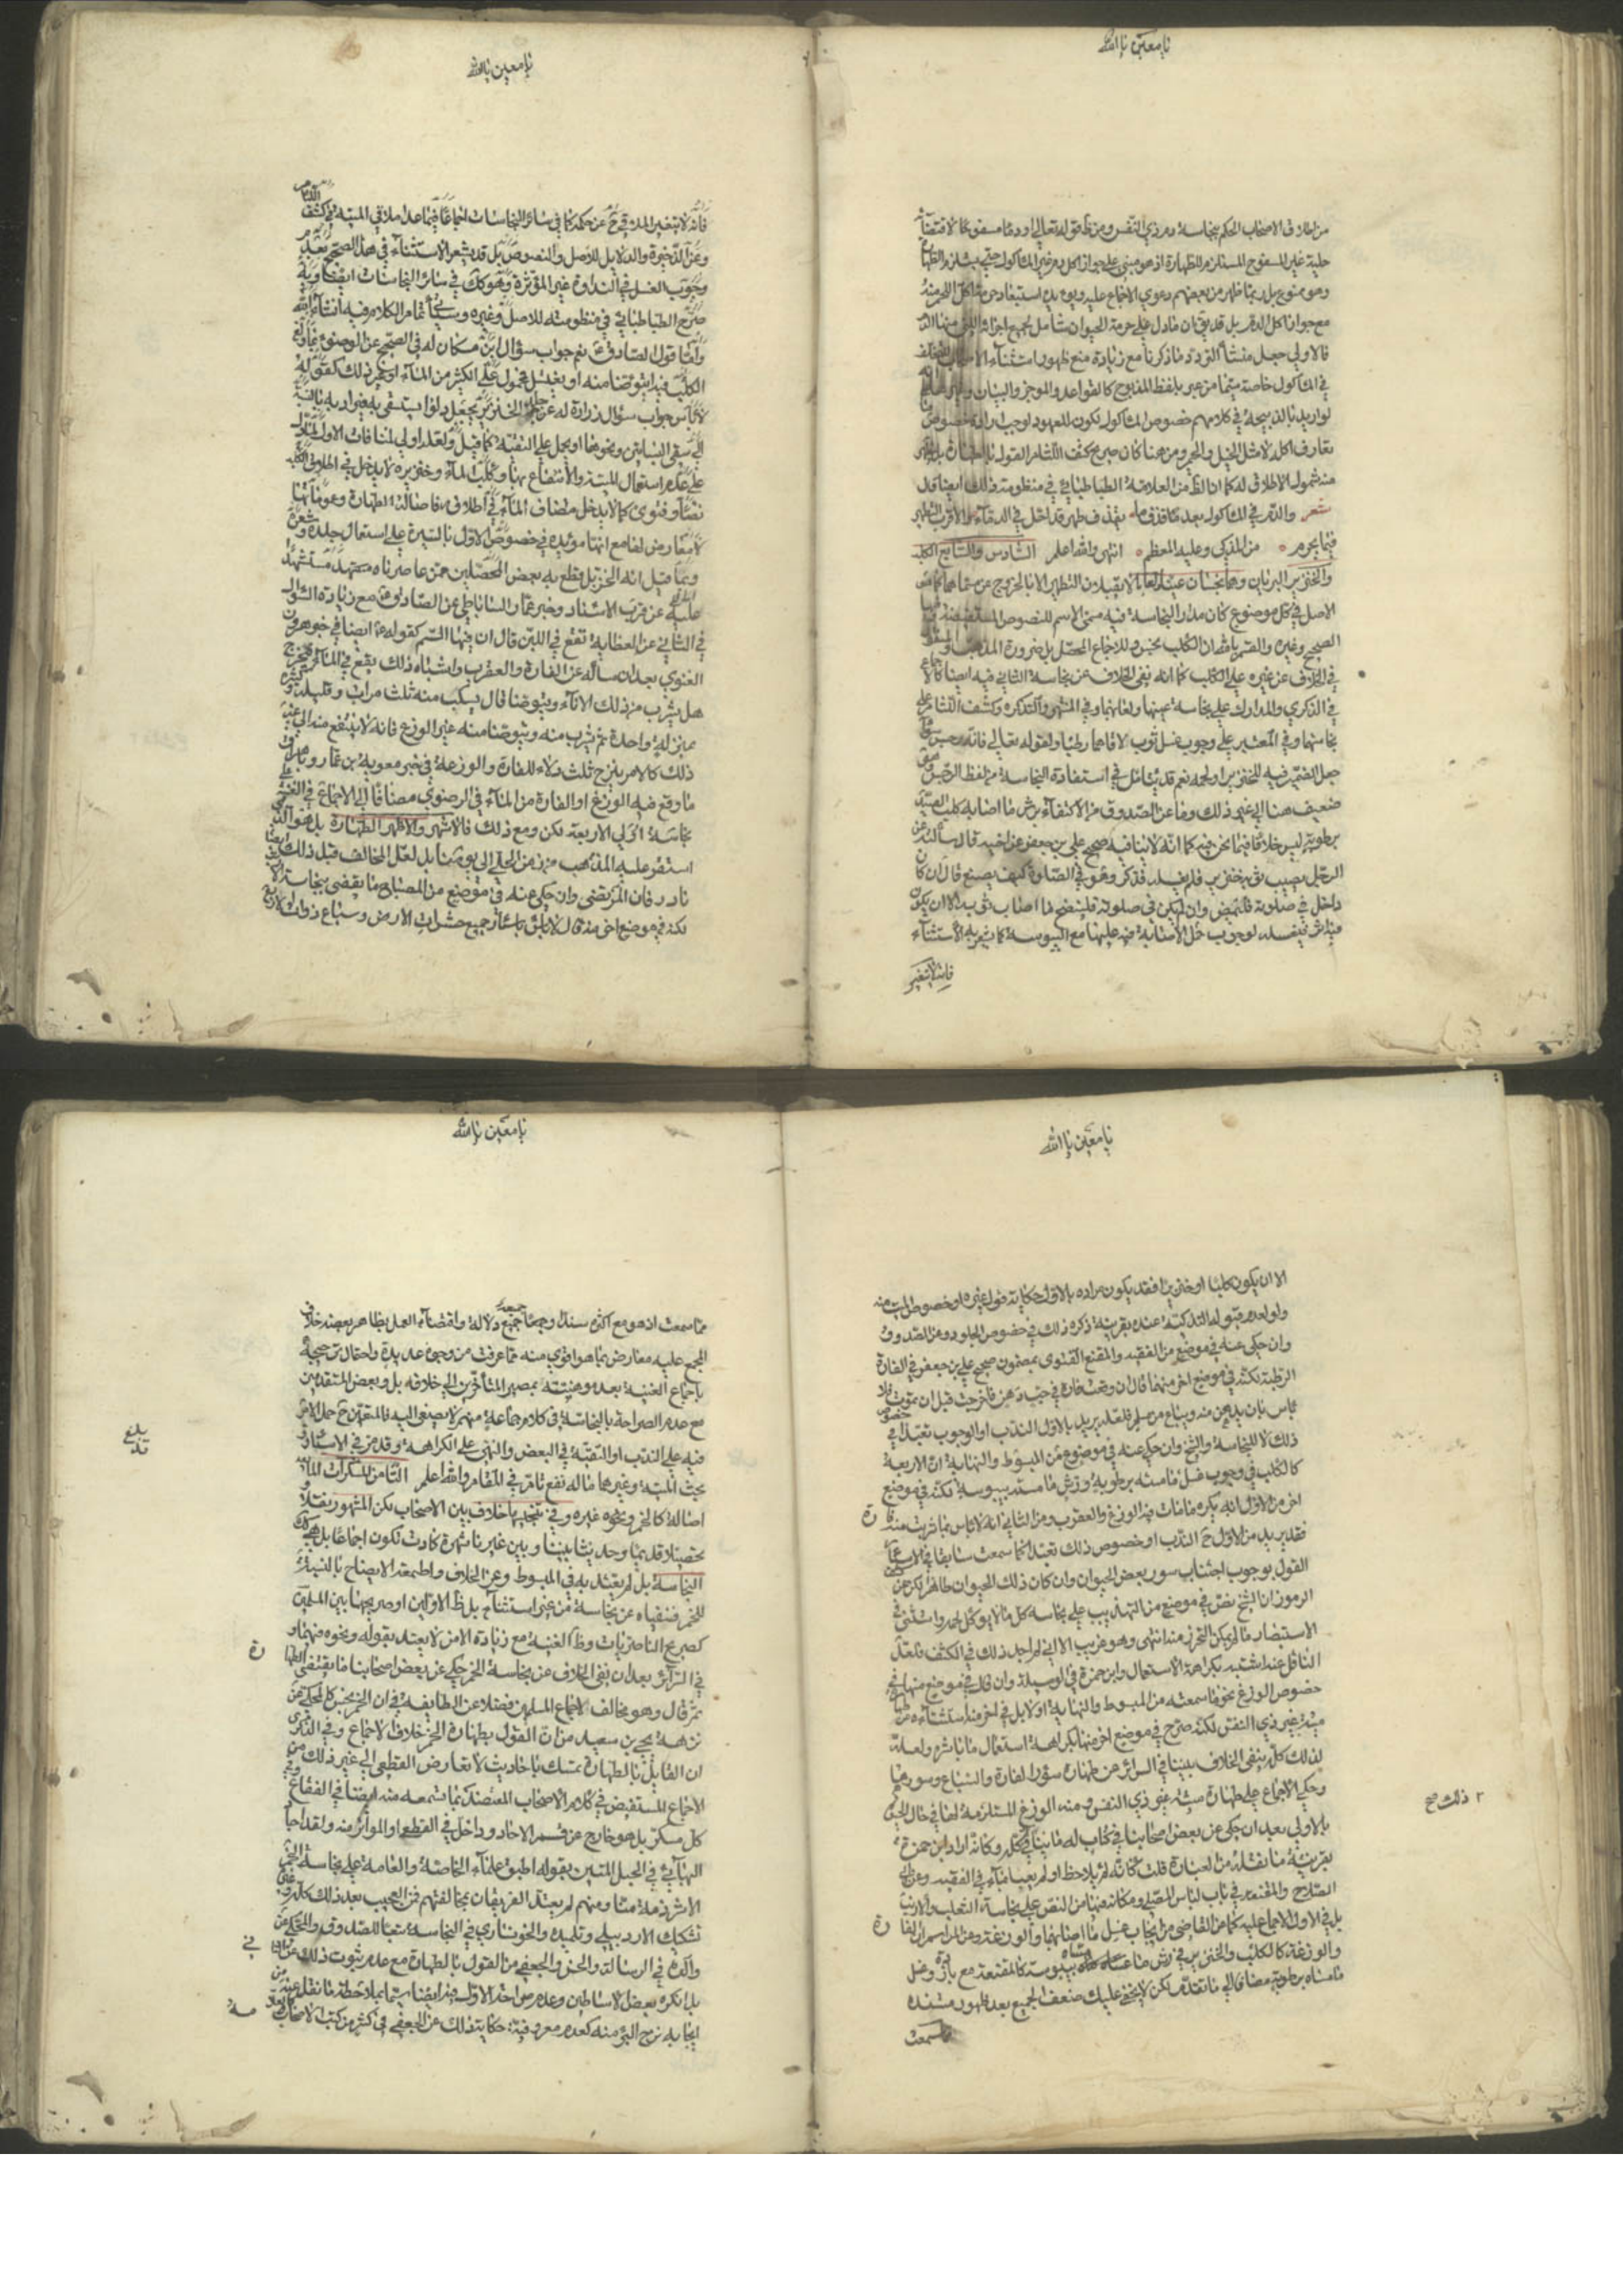 يا معين يا الله
من اطلاق الاصحاب الحكم بنجاسة دم ذي النفس ومن ظ قوله تعالى او دما مسفوحا لاقتضائه
حلية غير المسفوح المستلزم للطهارة اذ هو مبني على جواز اكل دم غير الماكول حتى يستلزم الطهارة
وهو ممنوع بل ربما ظهر من بعضهم دعوى الاجماع عليه ويؤيده استبعاد حرمة اكل اللحم منه
مع جواز اكل الدم بل قد يق ان ما دل على حرمة الحيوان شامل لجميع اجزائه التي منها الدم
فالاولى جعل منشأ التردد ما ذكرنا مع زيادة منع ظهور استثناء الاصحاب
في الماكول خاصة سيما من عبر بلفظ المذبوح كالقواعد والموجز والبيان
لو اريد بالذبيحة في كلامهم خصوص الماكول لكون المعهود لوجب ارادة خصوص
تعارف اكله لا مثل الخيل والحمر ومن هنا كان صريح كشف اللثام القول بالطهارة بل
منه شموله الاطلاق له كما ان الظ من العلامة الطباطبائي في منظومته ذلك ايضا قال
شعر والدم في الماكول بعد ما قذف ما يقذف طهر قد اختلف في الدماء والاقرب التطهير
فيما يحرم من المذكى وعليه المعظم انتهى والله اعلم السادس والسابع الكلب
والخنزير البريان وهما نجسان عينا ولعابا لا يقبلان التطهير الا بالخروج عن مسماهما كما هو
الاصل في كل موضوع كان مدار النجاسة فيه مسمى الاسم للنصوص المستفيضة فيها
الصحيح وغيره والقسم بالله ان الكلب نجس وللاجماع المحصل بل ضرورة المذهب والمنقول
في الخلاف عن غيره على الكلب كما انه نفى الخلاف عن نجاسة الثاني فيه ايضا كالاجماع
في الذكرى والمدارك على نجاسة عينهما ولعابهما وفي المنتهى والتذكرة وكشف اللثام على
نجاستهما وفي المعتبر على وجوب غسل ثوب لاقاهما رطبا ولقوله تعالى فانه رجس سواء
جعل الضمير فيه للخنزير او لحمه نعم قد يتامل في استفادة النجاسة من لفظ الرجس وهو
ضعيف هنا الى غير ذلك وما عن الصدوق من الاكتفاء برش ما اصابه كلب الصيد
برطوبة ليس خلافا فيما نحن فيه كما انه لا ينافيه صحيح علي بن جعفر عن اخيه قال سألته عن
الرجل يصيب ثوبه خنزير فلم يغسله فذكر وهو في الصلوة كيف يصنع قال ان كان
دخل في صلوته فليمض وان لم يكن في صلوته فلينضح ما اصاب ثوبه الا ان يكون
فيه اثر فيغسله لوجوب حمل الاصابة فيه عليها مع اليبوسة كما يشعر به الاستثناء
فانه لا يتغير
يا معين يا الله
فانه لا يتغير الملاقي ح عن حكمه كما في سائر النجاسات اجماعا فيما عدا ملاقي الميتة في كشف اللثام
وعن الذخيرة والدلايل للاصل والنصوص بل قد يشعر الاستثناء في هذا الصحيح بعدم
وجوب الغسل في النداوة غير المؤثرة وهو كك في سائر النجاسات ايضا وبه
صرح الطباطبائي في منظومته للاصل وغيره وسيأتي تمام الكلام فيه انشاء الله
واما قول الصادق ع نعم جواب سؤال ابن مسكان له في الصحيح عن الوضوء مما ولغ
الكلب فيه ايتوضا منه او يغتسل محمول على الكثير من الماء او غير ذلك كقوله ع له
لا باس جواب سؤال زرارة له عن جلد الخنزير يجعل دلوا يستقى به غير اد به بالنسبة
الى سقي البساتين ونحوها او يحمل على التقية كما قيل ولعله اولى لمنافات الاول لما دل
على عدم استعمال الميتة والانتفاع بها وكلب الماء وخنزيره لا يدخل في اطلاق الكلب
نصا وفتوى كما لا يدخل مضاف الماء في اطلاقه فاصالة الطهارة وعموماتها
لا معارض لها مع انها مؤيدة في خصوص الاول بالسيرة على استعمال جلده وشعره
ومما قيل انه الخز بل قطع به بعض المحصلين ممن عاصرناه مجتهدا مستشهدا
عليه عن قرب الاسناد وخبر عمار الساباطي عن الصادق ع مع زيادة السؤال
في الثاني عن العظاية تقع في اللبن قال ان فيها السم كقوله ع ايضا في خبر هرون
الغنوي بعد ان سأله عن الفارة والعقرب واشباه ذلك يقع في الماء فيخرج
هل يشرب من ذلك الاناء ويتوضا قال يسكب منه ثلث مرات وقليله وكثيره
بمنزلة واحدة ثم يشرب منه ويتوضا منه غير الوزغ فانه لا ينتفع منه الى غير
ذلك كالامر بنزح ثلث دلاء للفارة والوزغة في خبر معوية بن عمار
ما وقع فيه الوزغ او الفارة من الماء في الرضوي مضافا الى الاجماع في الغنية على
نجاسة اولى الاربعة لكن ومع ذلك فالاشهر والاظهر الطهارة بل هو الذي
استقر عليه المذهب من زمن الحلي الى يومنا بل لعل المخالف قبل ذلك ايضا
نادر فان المرتضى وان حكى عنه في موضع من المصباح ما يقضي بنجاسة الارنب
لكنه في موضع اخر منه قال لا باس باسئار جميع حشرات الارض وسباع ذوات الاربع
يا معين يا الله
الا ان يكون كلبا او خنزيرا فقد يكون مراده بالاول حكاية قول غيره او خصوص الميت منه
ولو لعدم قبوله التذكية عنده بقرينة ذكره ذلك في خصوص الجلود ومن الصدوق
وان حكى عنه في موضع من الفقيه والمقنع الفتوى بمضمون صحيح علي بن جعفر في الفارة
الرطبة لكنه في موضع اخر منهما قال ان وقعت فارة في حب دهن فاخرجت قبل ان تموت فلا
باس بان يدهن منه ويباع من مسلم فلعله يريد بالاول الندب او الوجوب تعبدا في خصوص
ذلك لا للنجاسة والشيخ وان حكى عنه في موضع من المبسوط والنهاية ان الاربعة
كالكلب في وجوب غسل ما مسته برطوبة ورش ما مسته بيبوسة لكنه في موضع
اخر من الاول انه يكره ما مات فيه الوزغ والعقرب ومن الثاني انه لا باس بما شربت منه فارة
فقد يريد من الاول ح الندب او خصوص ذلك تعبدا كما سمعت سابقا في الاسئار
القول بوجوب اجتناب سور بعض الحيوان وان كان ذلك الحيوان طاهرا لكن عن كشف
الرموز ان الشيخ نص في موضع من التهذيب على نجاسة كل ما لا يوكل لحمه واستثنى في
الاستبصار ما لا يمكن التحرز منه انتهى وهو غريب الا اني لم اجد ذلك في الكشف فلعل
الناقل عنه اشتبه بكراهة الاستعمال وابن حمزة في الوسيلة وان قال في موضع منها في
خصوص الوزغ نحو ما سمعته من المبسوط والنهاية اولا بل في اخر منها استثناءه من طهارة
ميتة غير ذي النفس لكنه صرح في موضع اخر منها بكراهة استعمال ما باشره ولعله
لذلك كله نفى الخلاف بيننا في السرائر عن طهارة سؤر الفارة والسباع وسورهما
وحكى الاجماع على طهارة ميتة غير ذي النفس ومنه الوزغ المستلزمة لها في حال الحيوة
بالاولى بعد ان حكى عن بعض اصحابنا في كتاب له ما ينافي ذلك وكانه اراد ابن حمزة
بقرينة ما نقله من العبارة قلت كانه لم يلاحظ او لم يعبا بما في الفقيه وعن ابي
الصلاح والمقنعة في باب لباس المصلي ومكانه فيهما من النص على نجاسة الثعلب والارنب
بل في الاول الاجماع عليه كما عن القاضي من ايجاب غسل ما اصابهما والوزغة وعن المراسم ان الفارة
والوزغة كالكلب والخنزير في رش ما مساه بيبوسة كالمقنعة مع زيادة وغسل
ما مساه برطوبة مضافا الى ما تقدم لكن لا يخفى عليك ضعف الجميع بعد ظهور مستنده
مما سمعت
٢ ذلك صح
يا معين يا الله
مما سمعت اذ هو مع اكثره سندا وجميعه دلالة واقتضاء العمل بظاهر بعضه خلاف
المجمع عليه معارض بما هو اقوى منه مما عرفت من وجوه عديدة واحتمال ترجيحه
باجماع الغنية بعد وهنه بمصير المتاخرين الى خلافه بل وبعض المتقدمين
مع عدم الصراحة بالنجاسة في كلام جماعة منهم لا يصغى اليه فالمتعين ح حمل الامر
فيه على الندب او التقية في البعض والنهي على الكراهة وقد مر في الاسئار وفي
بحث الميتة وغيرهما ما له نفع تام في المقام والله اعلم الثامن المسكرات المائعة
اصالة كالخمر ونحوه غيره وفي تنجيسها خلاف بين الاصحاب لكن المشهور نقلا و
تحصيلا قديما وحديثا بيننا وبين غيرنا شهرة كادت تكون اجماعا بل هي كك
النجاسة بل لم يعتد به في المبسوط وعن الخلاف واطعمة الايضاح بالنسبة
للخمر فنفياه عن نجاسة من غير استثناء بل ظ الاولين او صريحهما بين المسلمين
كصريح الناصريات وظ الغنية مع زيادة الا من لا يعتد بقوله ونحوه فيهما و
في السرائر بعد ان نفى الخلاف عن نجاسة الخمر حكى عن بعض اصحابنا ما يقتضي الطهارة
ثم قال وهو مخالف لاجماع المسلمين فضلا عن الطايفة في ان الخمر نجس كالمحكي عن
نزهة يحيى بن سعيد من ان القول بطهارة الخمر خلاف الاجماع وفي الذكرى
ان القايل بالطهارة تمسك باحاديث لا تعارض القطعي الى غير ذلك من
الاجماع المستفيض في كلام الاصحاب المعتضد بما تسمعه منه ايضا في الفقاع وفي
كل مسكر بل هو خارج عن قسم الاحاد وداخل في القطعي او المواتر منه ولقد اجاد
البهائي في الحبل المتين بقوله اطبق علماء الخاصة والعامة على نجاسة الخمر
الا شرذمة منا ومنهم لم يعتد الفريقان بمخالفتهم فمن العجيب بعد ذلك كله
تشكيك الاردبيلي وتلميذه والخونساري في النجاسة تبعا للصدوق والمحكي عن
والده في الرسالة والحسن والجعفي من القول بالطهارة مع عدم ثبوت ذلك عن
بل انكره بعض الاساطين وعدم صراحة الاول فيه ايضا سيما بملاحظة ما نقل عنه من
ايجابه نزح البئر منه كعدم معروفية حكاية ذلك عن الجعفي في كثير من كتب الاصحاب
بلغ